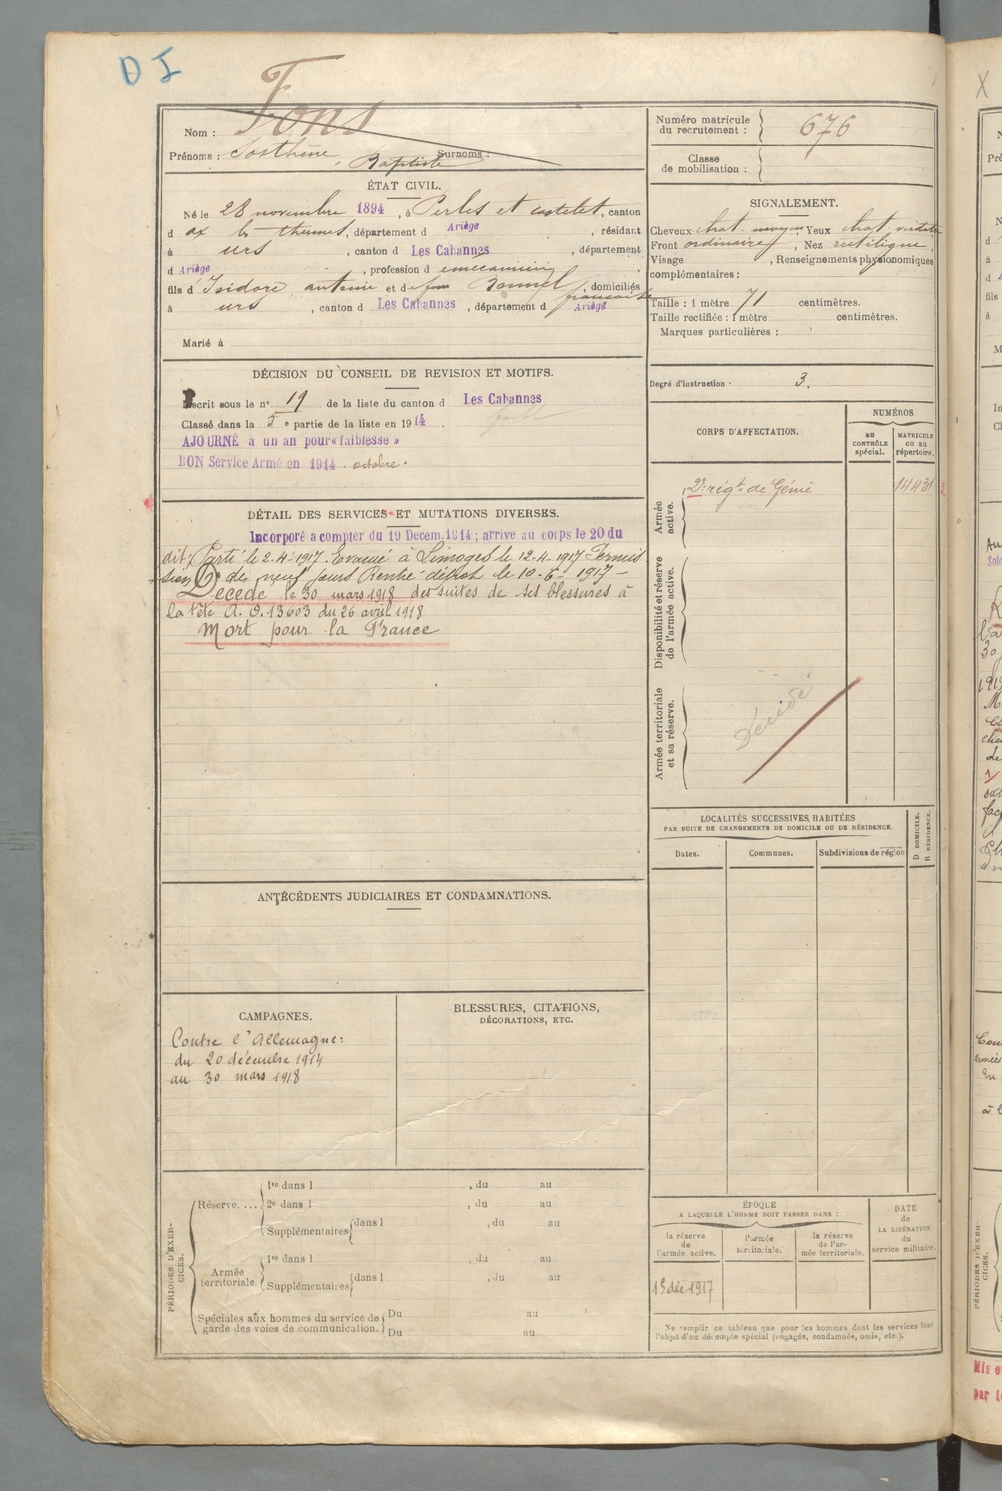 D I
Nom : Fons
Prénoms : Sosthène, Baptiste Surnoms :
ÉTAT CIVIL.
Né le 28 novembre 1894, à Perles et castelet, canton
d ax les thermes, département d Ariège, résidant
à urs, canton d Les Cabannes, département
d Ariège, profession de mécanicien
fils d'Isidore antonin et de Bonnel françoise, domiciliés
à urs, canton d Les Cabannes, département d Ariège
Marié à
DÉCISION DU CONSEIL DE REVISION ET MOTIFS.
Inscrit sous le n° 19 de la liste du canton d Les Cabannes
Classé dans la 5e partie de la liste en 1914.
AJOURNÉ a un an pour « faiblesse »
BON Service Armé en 1914. octobre.
DÉTAIL DES SERVICES ET MUTATIONS DIVERSES.
Incorporé a compter du 19 Decem. 1914 ; arrive au corps le 20 du
dit. Parti le 2-4-1917. Evacué à Limoges le 12-4-1917 Permis
sion de neuf jours Rentré dépôt le 10-6-1917
Décédé le 30 mars 1918 des suites de ses blessures à
la tête A. O. 13603 du 26 avril 1918
Mort pour la France
ANTÉCÉDENTS JUDICIAIRES ET CONDAMNATIONS.
CAMPAGNES.
Contre l'Allemagne :
du 20 décembre 1914
au 30 mars 1918
BLESSURES, CITATIONS,
DÉCORATIONS, ETC.
PÉRIODES D'EXER-
CICES.
Réserve.... 1re dans l , du au
2e dans l , du au
Supplémentaires dans l , du au
Armée
territoriale. 1re dans l , du au
Supplémentaires dans l , du au
Spéciales aux hommes du service de Du au
garde des voies de communication. Du au
Numéro matricule
du recrutement : 676
Classe
de mobilisation :
SIGNALEMENT.
Cheveux chat. moyen, Yeux chat.
Front ordinaire, Nez rectiligne,
Visage , Renseignements physionomiques
complémentaires :
Taille : 1 mètre 71 centimètres.
Taille rectifiée : 1 mètre centimètres.
Marques particulières :
Degré d'instruction : 3.
CORPS D'AFFECTATION.
NUMÉROS
AU
CONTRÔLE
spécial.
MATRICULE
OU AU
répertoire.
Armée
active.
2e régt. de Génie 14431
Disponibilité et réserve
de l'armée active.
Armée territoriale
et sa réserve.
Décédé
LOCALITÉS SUCCESSIVES HABITÉES
PAR SUITE DE CHANGEMENTS DE DOMICILE OU DE RÉSIDENCE.
D DOMICILE.
R RÉSIDENCE.
Dates. Communes. Subdivisions de région
ÉPOQUE
A LAQUELLE L'HOMME DOIT PASSER DANS :
la réserve
de
l'armée active.
l'armée
territoriale.
la réserve
de l'ar-
mée territoriale.
DATE
de
LA LIBÉRATION
du
service militaire.
15 déc 1917
Ne remplir ce tableau que pour les hommes dont les services font
l'objet d'un décompte spécial (engagés, condamnés, omis, etc.).